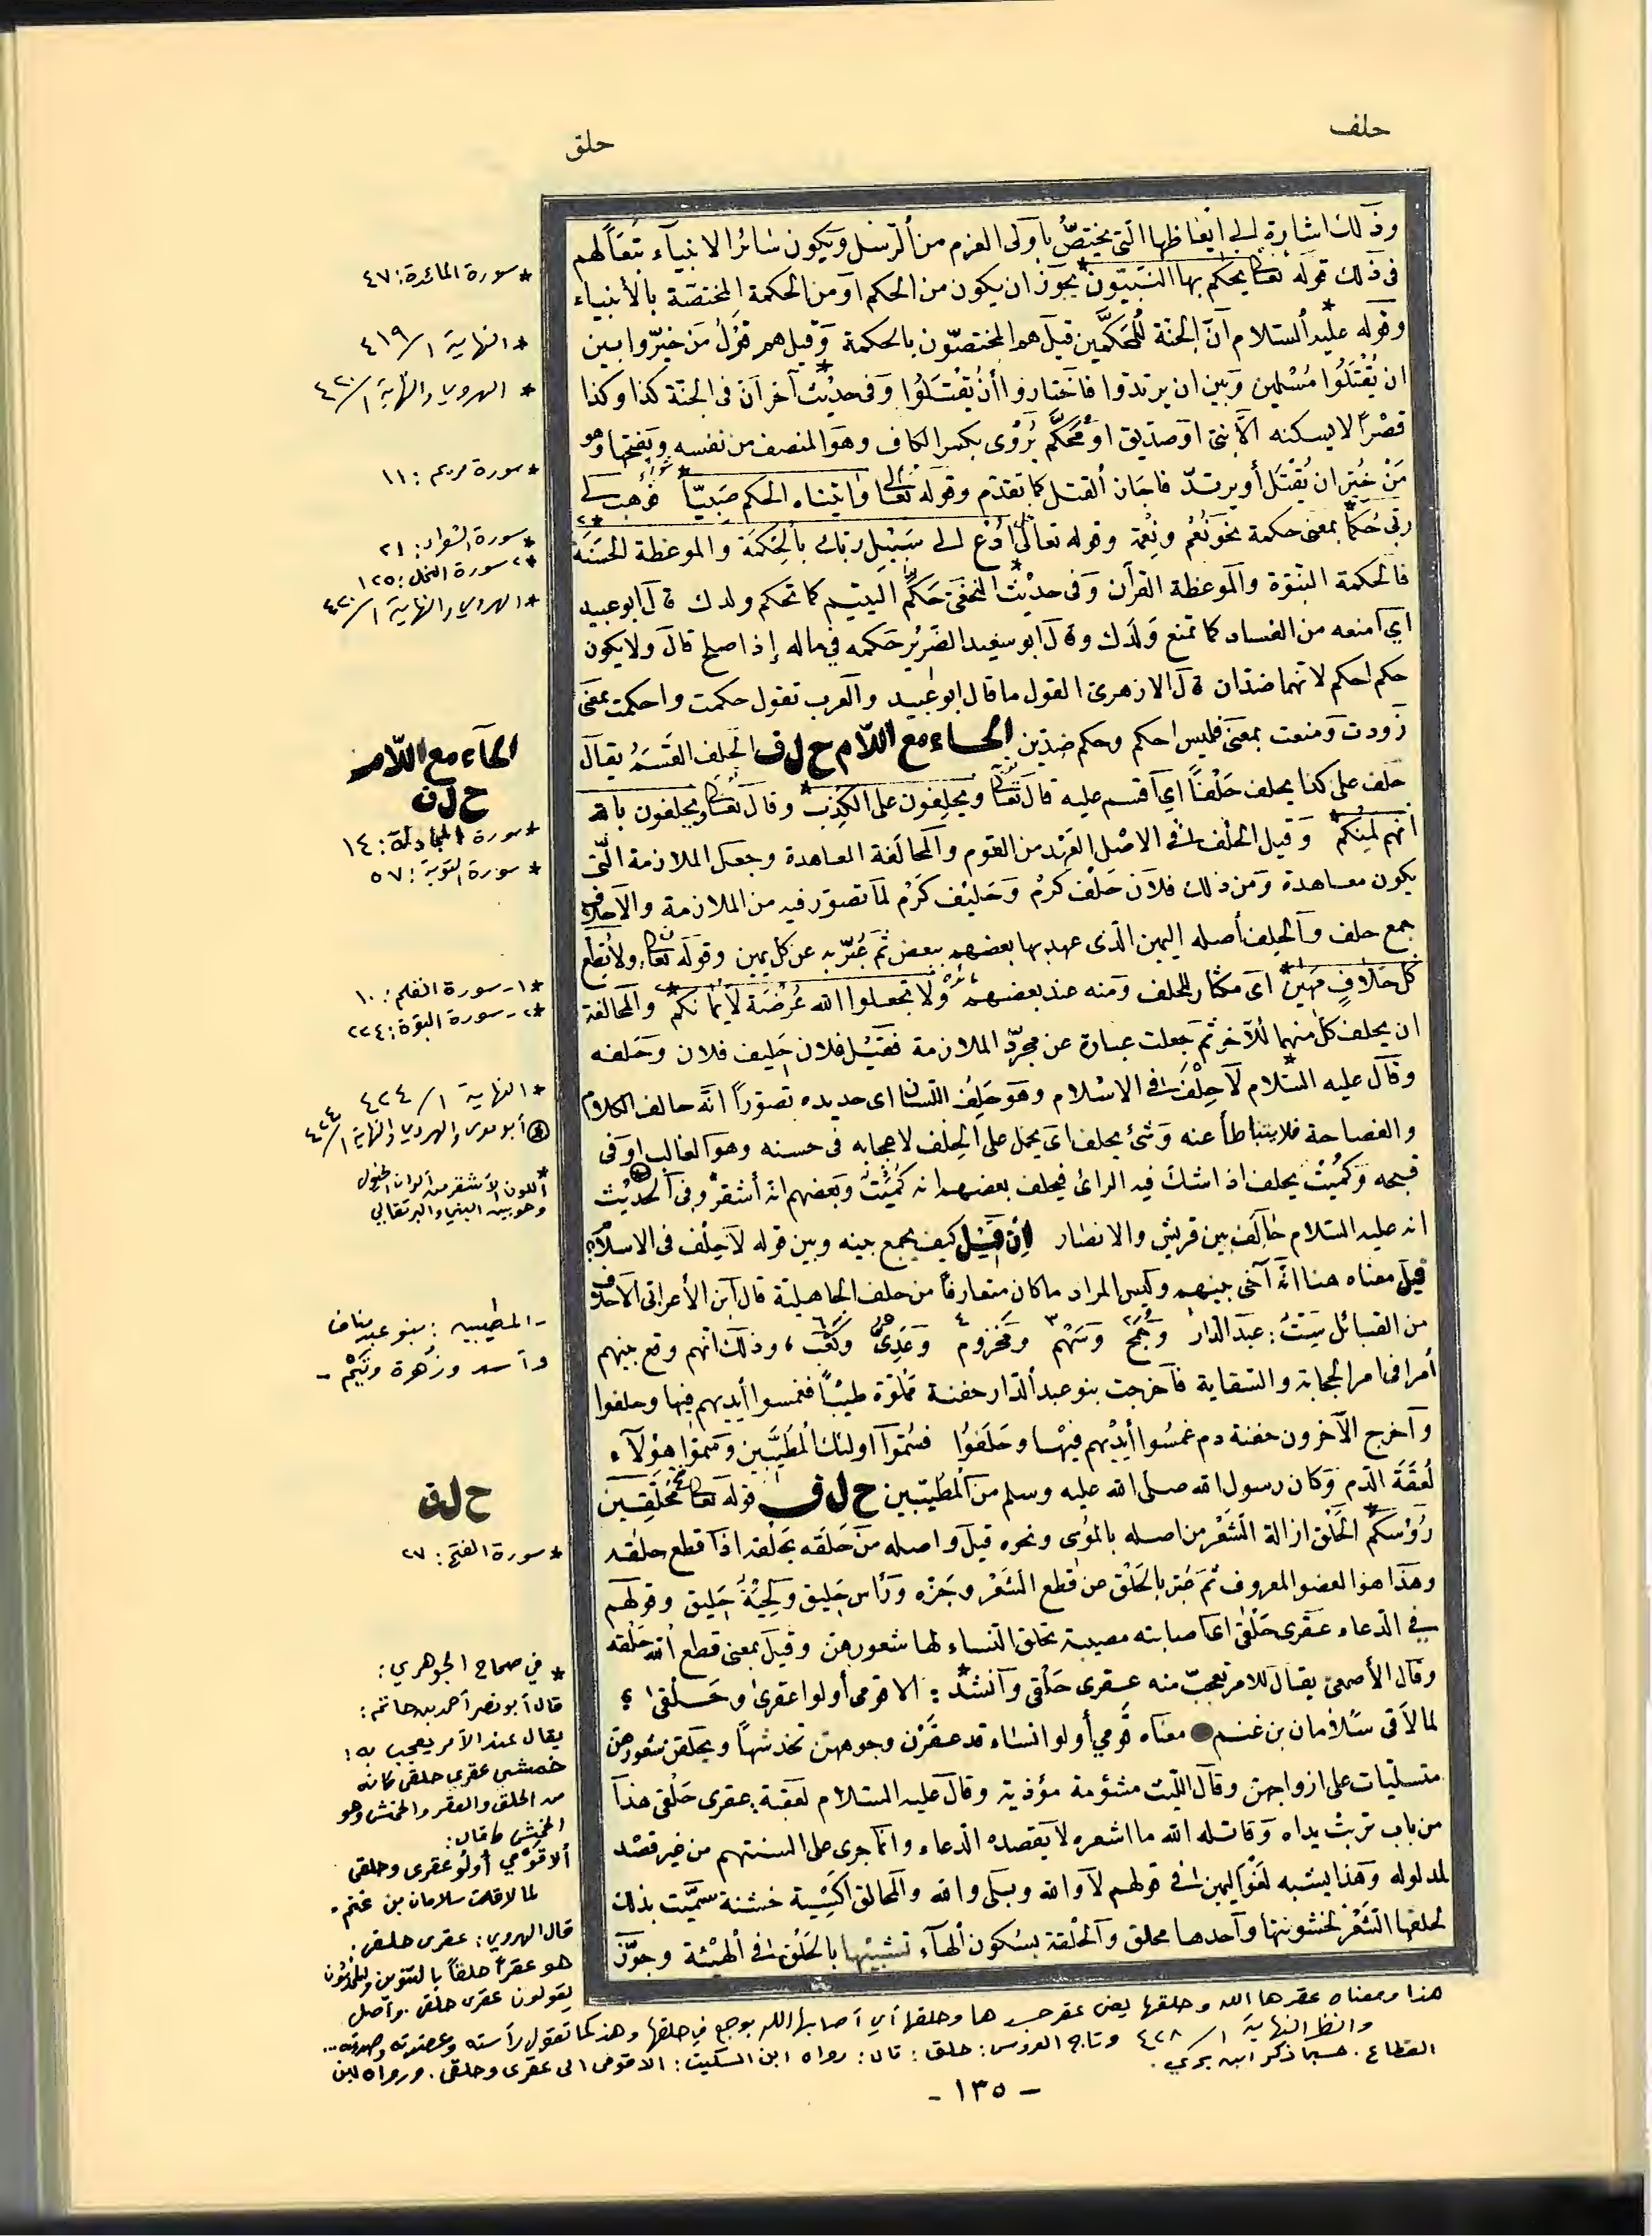 حلف
حلق
وذلك اشارة الى ايقاظها التي يختصّ باولى العزم من الرسل ويكون سائر الانبياء تبعاً لهم
فى ذلك قوله تعالى يحكم بها النبيّون* يجوز ان يكون من الحكم اومن الحكمة المختصّة بالأنبياء
وقوله عليه السلام انّ الجنّة للمحكَّمين* قيل هم المختصّون بالحكمة وقيل هم قوْلُ مَن خيّروا بين
ان يُقْتَلُوا مُسْلمين وبين ان يرتدّوا فاختاروا أنْ يُقْتَلُوا وفى حديث* آخر انّ فى الجنّة كذا وكذا
قصْرًا لايسكنه الاّ نبىّ اوصدّيق اومُحَكّم يُرْوى بكسر الكاف وهو المنصف من نفسه وبفتحها وهو
مَنْ خُيّر ان يُقْتَل أويرتدّ فاختار القتل كما تقدّم وقوله تعالى واتيناه الحكم صَبيّاً* فوَهب لى
ربّى حُكماً* بمعنى حكمة نحو نُعْم ونِعْمة وقوله تعالى ادْعُ الى سَبيْلِ ربّك بالْحِكمَة والموعظة الحسَنَة*٢
فالحكمة النبوّة والموعظة القرآن وفى حديْث* النخعىّ حَكّم اليتيم كما تحكم ولدك قال ابوعبيد
اي امنعه من الفساد كما تمنع وَلَدك وقال ابو سعيد الضَريْر حَكمه في ماله إذا صلح قال ولا يكون
حكم احكم لانهما ضدّان قال الازهرىّ القول ما قال ابوعُبيد والعرب تقول حكمت واحكمت بمعنى
رَودت ومَنعت بمعنى فليس احكم وحكم ضِدّين الحاء مع اللّام ح ل ف الحلف القَسَمُ يقال
حلف على كذا يحلف حَلْفاً اي اقسم عليه قال تعالى ويحلِفون على الكذِب* وقال تعالى ويحلفون بالله
انّهم لَمِنكم* وقيل الحَلْف فى الاصْل العَهْد من القوم والمحالَفة المعاهدة وجعل الملازمة الّتى
يكون معاهدة ومَن ذلك فلان حَلْفُ كرَم وحَليْف كَرَم لمّا تصوّر فيه من الملازمة والاحلاف
جمع حلف والحِلف أصله اليمين الّذى عهد بها بعضهم ببعض ثمّ عُبّر به عن كل يمين وقوله تعالى ولا تُطِع
كل حَلّافٍ مَهين*١ اى مكثار للحلف ومنه عند بعضهم ولا تجعلوا الله عُرْضَة لأيمانكم*٢ والمحالفة
ان يحلف كلّ منهما للآخر ثمّ جعلت عبارة عن مجرّد الملازمة فقيْل فلان حَلِيف فلان وحَلفه
وقال عليه السّلام لا حِلْف فى الاسلام* وهو حَلِيْف اللّسان اى حديده تصوّراً انّه حالف الكلام
والفصاحة فلا يتباطأ عنه وشئ يحلف اى يحمل على الحلف لاعجابه فى حسنه وهو الغالب اوفى
قبحه وكُمَيْت يحلف اذا شك فيه الرائى فيحلف بعضهم انه كُمَيْت وبعضهم انّه أشقر* وفى الحديْث
انه عليه السّلام حَالَف بين قريش والانصار إن قيل كيف يجمع بينه وبين قوله لا حِلْف فى الاسلام
قيل معناه هنا انّه آخى بينهم وليس المراد ما كان متعارفاً من حلف الجاهلية قال ابن الأعرابى الاحلاف
من القبائل سِتّ: عبدُ الدّار وجُمَحُ٢ وسَهْم٣ ومخزوم٤ وعَدِىّ٥ وكَعْب٦، وذلك انّهم وقع بينهم
أمر فى امر الحجابة والسّقاية فأخرجت بنو عبد الدّار جفنة مملوّة طيباً فغمسوا أيديهم فيها وحلفوا
وأخرج الآخرون جفنة دم غمسُوا أيديهم فيها وحَلَفُوا فسُمّوا اولئك المُطيّبين وسمّوا هؤلاء
لَعَقَة الدّم وكان رسول الله صلى الله عليه وسلم من المُطيّبين ح ل ق قوله تعالى مُحلّقين
رُؤْسكم* الحَلْق ازالة الشَعْر من اصله بالموسى ونحوه قيل واصله من حَلقَه يَحلقه اذا قطع حلقه
وهذا هو العضو المعروف ثمّ عُبّر بالحَلْق عن قطع الشَعْر وجَزّه ورَأس حَليق ولِحْيَة حَليق وقولهم
في الدّعاء عقرى حَلْقى اى اصابته مصيبة تحلق النساء لها شعورهنّ وقيل بمعنى قطع الله حَلْقه
وقال الأصمعىّ يقال للامر تعجبّ منه عقرى حَلْقى وأنشد*: الا قومى أولوا عقرىٰ وحَلْقىٰ ؟
لما لاقى سَلامان بن غنم معناه قومي أولوا نساء قد عقَرْن وجوههنّ تخدشهاً ويحلقن شعورهنّ
متسلّيات على ازواجهنّ وقال اللّيث مشئومة مؤذية وقال عليه السّلام لصفيّة: عقرى حَلْقى هذا
من باب تربت يداه وقاتله الله ما اشعره لا يقصده الدعاء وانّما جرى على السنتهم من غير قصْد
لمدلوله وهذا يشبه لَغْو اليمين فى قولهم لا والله وبلى والله والمحالق اكسِية خشنة سمّيت بذلك
لحلقها الشَعْر لخشونتها واحدها محلق والحَلْقة بسُكون اللام تشبيهاً بالحَلْق فى الهيْئة وجوّز
* سورة المائدة: ٤٧
* النهاية ١/٤١٩
* الهروي والنهاية ١/٤٢٠
* سورة مريم: ١١
* سورة الشعراء: ٢١
*٢ سورة النحل: ١٢٥
* الهروي والنهاية ١/٤٢٠
الحاء مع اللّام
ح ل ف
* سورة المجادلة: ١٤
* سورة التوبة: ٥٧
*١- سورة القلم: ١٠
*٢- سورة البقرة: ٢٢٤
* النهاية ١/٤٢٤
أبو موسى والهروي والنهاية ١/٤٢٤
* اللون الأشقر من ألوان الخيل
وهو بين البني والبرتقالي
- المطيبين: بنو عبد مناف
وأسد وزُهرة وتَيْم -
ح ل ق
* سورة الفتح: ٢٧
* في صحاح الجوهري:
قال أبو نصر أحمد بن حاتم:
يقال عند الأمر يعجب به:
خمشى عقرى حلقى كأنه
من الحلق والعقر والخمش وهو
الخمش وقال:
ألا قَوْمي أُولُو عقرى وحلقى
لما لاقت سلامان بن غنم.
قال الهروي: عقرى حلقى:
هو عقراً حلقاً بالتنوين والمحدثون
يقولون عقرى حلقى. وأصل
هذا ومعناه عقرها الله وحلقها يعنى عقر جسدها وحلقها أي أصابها الله بوجع في حلقها وهذا كما تقول رأسته وعضدته وصدرته...
وانظر النهاية ١/٤٢٨ وتاج العروس: حلق: قال: رواه ابن السكيت: الا قومى الى عقرى وحلقى. ورواه ابن
القطاع. حسبما ذكر ابن بري.
- ١٣٥ -